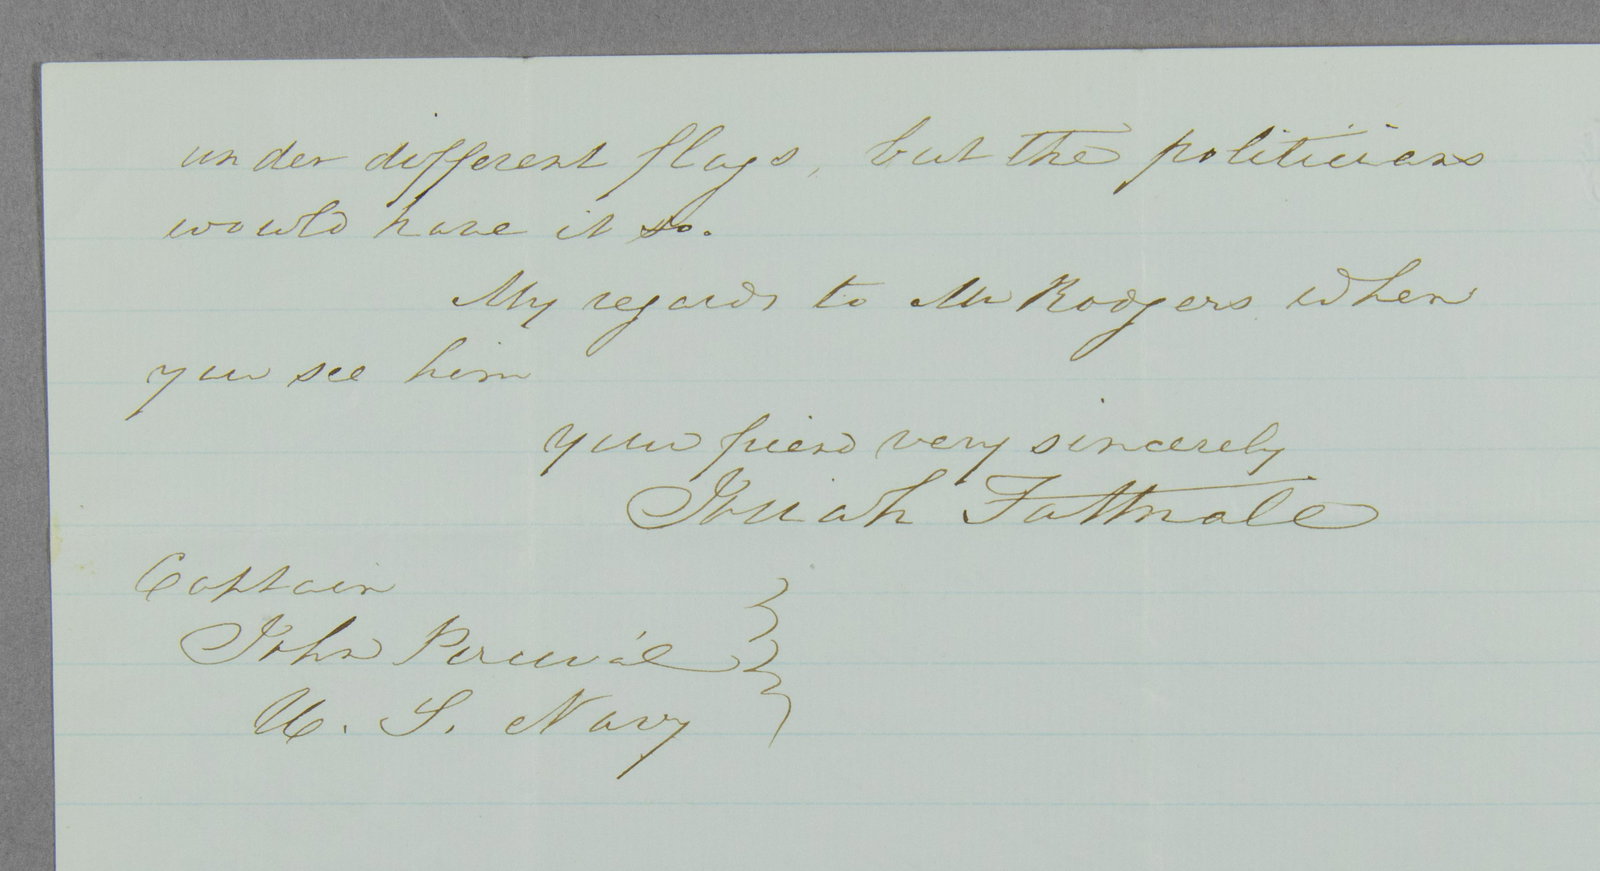 under different flags, but the politicians
would have it so.
My regards to Mr Rodgers when
you see him
your friend very sincerely
Josiah Tattnall
Captain
John Percival
U. S. Navy